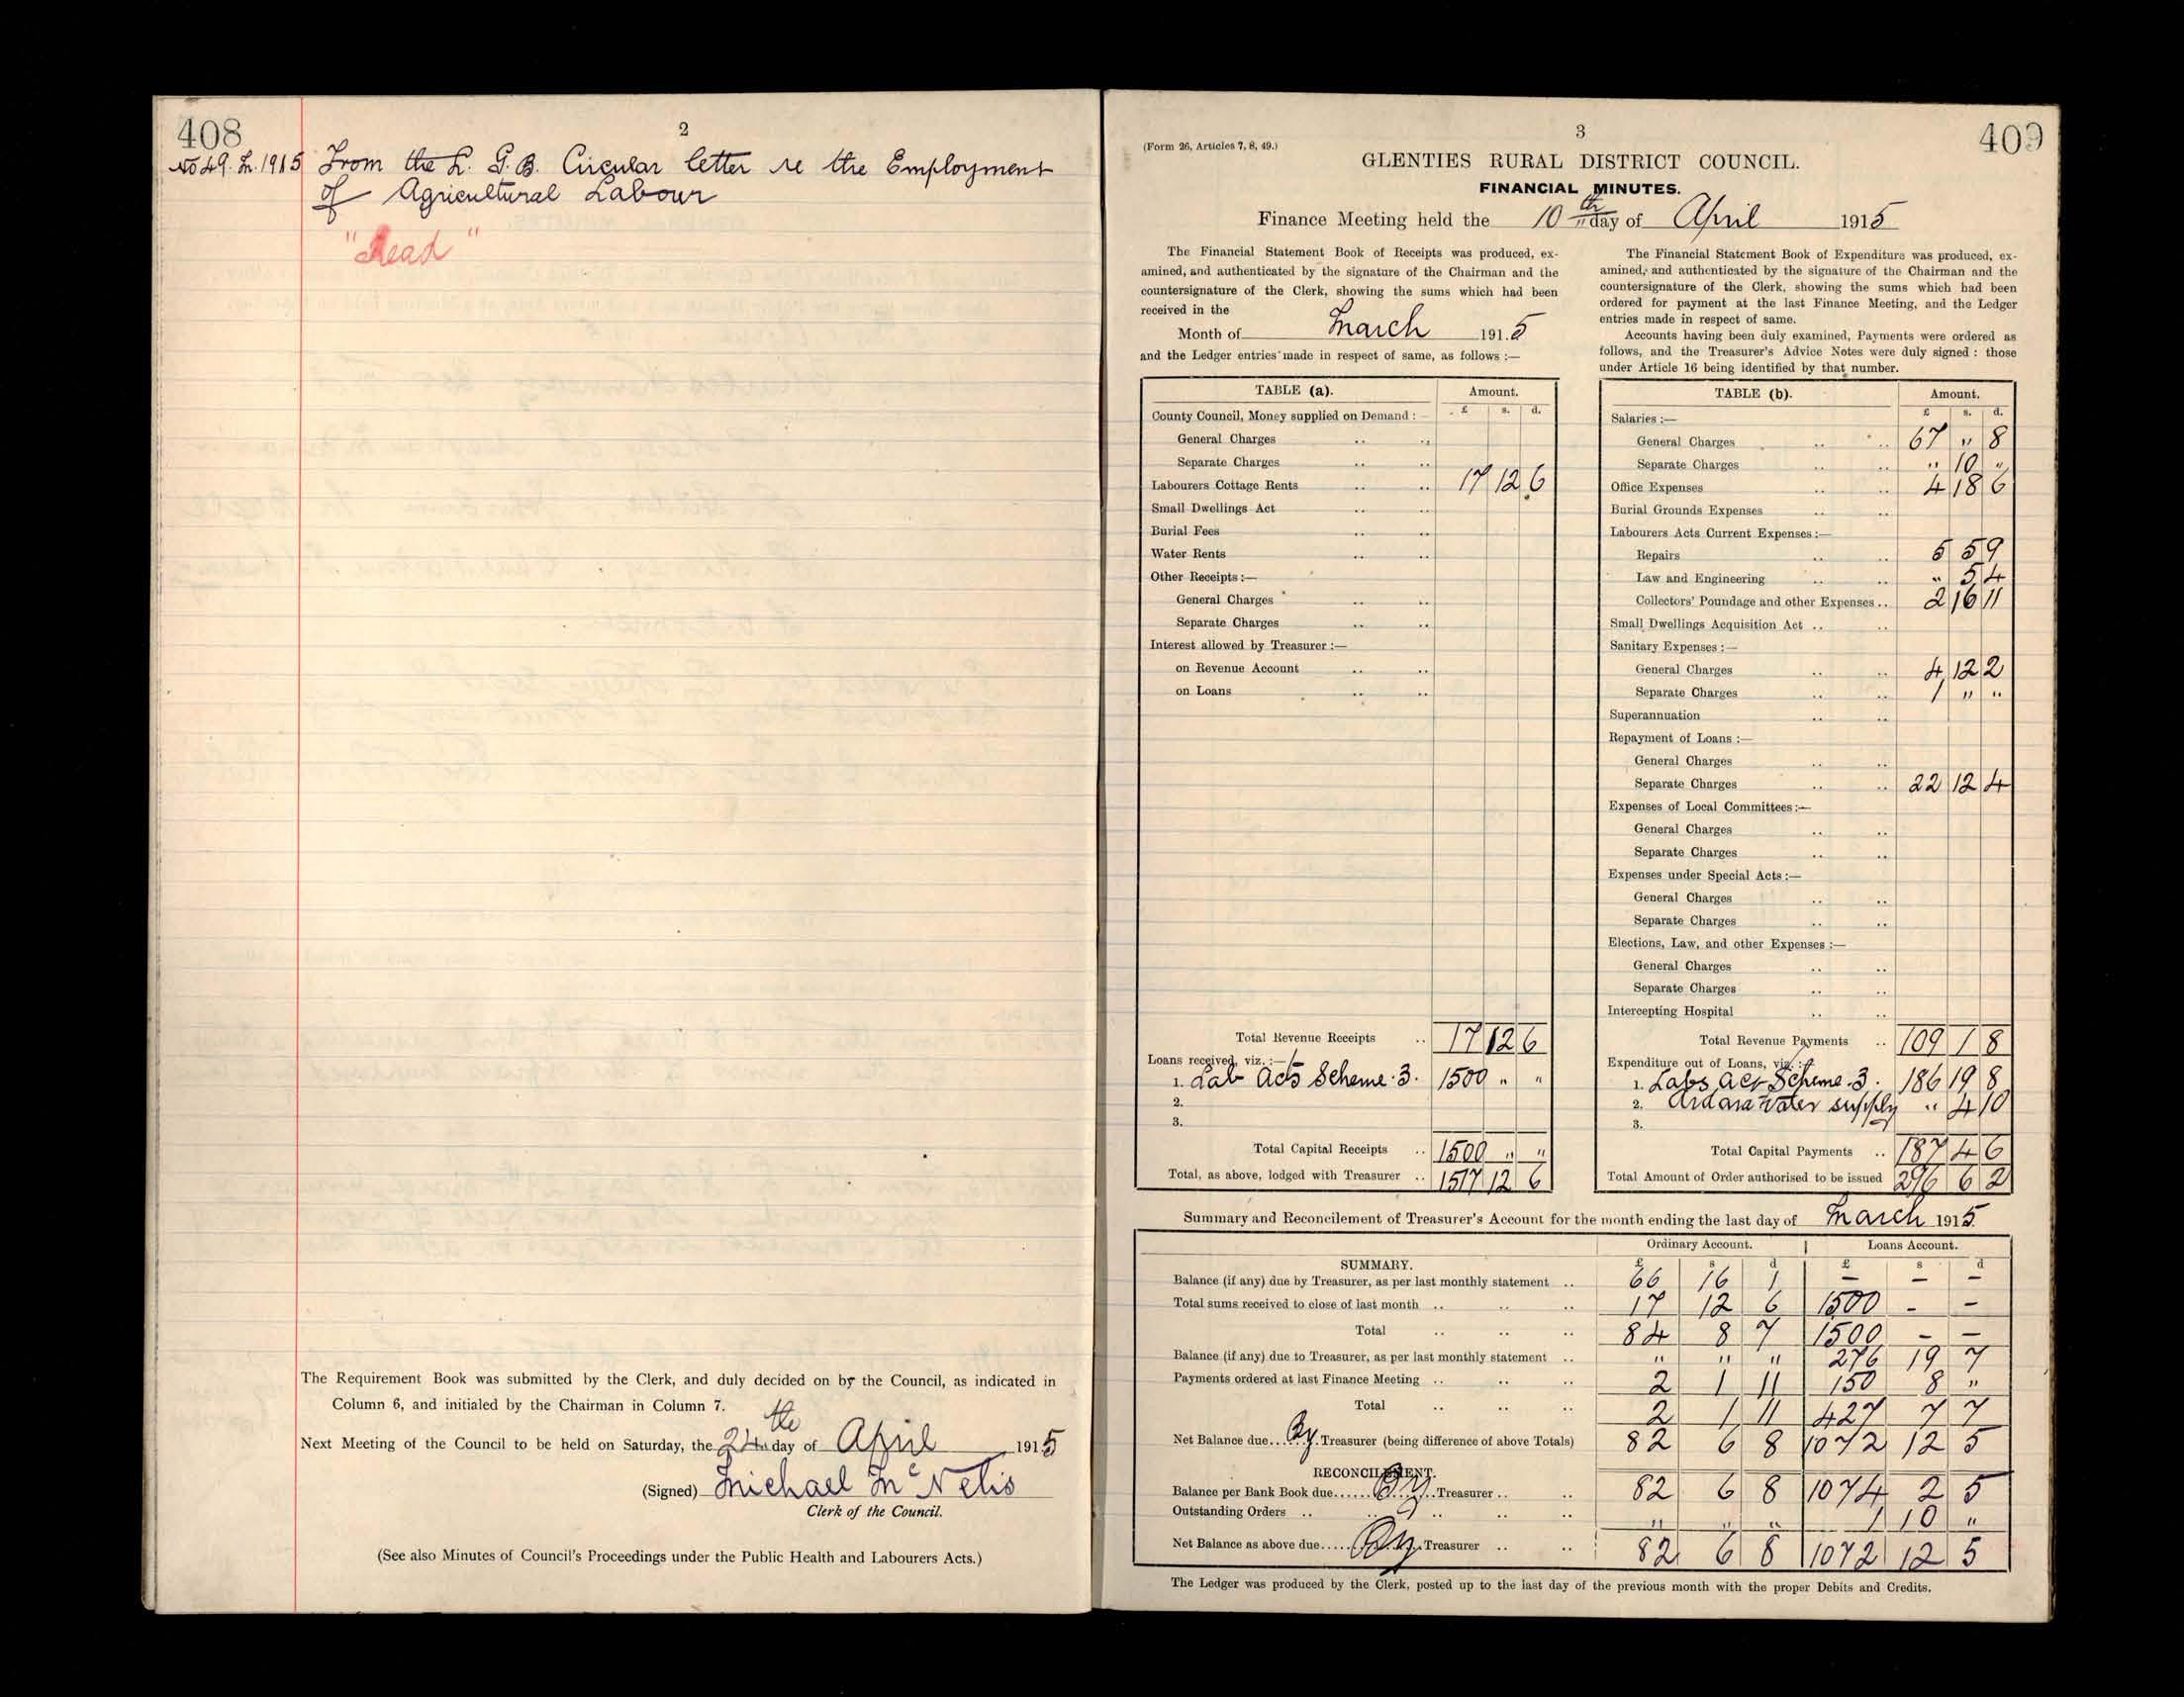 408
2
No 49. L. 1915 From the L. G. B. Circular letter re the Employment
of Agricultural Labour
"Read"
The Requirement Book was submitted by the Clerk, and duly decided on by the Council, as indicated in
Column 6, and initialed by the Chairman in Column 7.
Next Meeting of the Council to be held on Saturday, the 24th day of April 1915
(Signed) Michael McNelis
Clerk of the Council.
(See also Minutes of Council's Proceedings under the Public Health and Labourers Acts.)
3
409
(Form 26, Articles 7, 8, 49.)
GLENTIES RURAL DISTRICT COUNCIL.
FINANCIAL MINUTES.
Finance Meeting held the 10th day of April 1915
The Financial Statement Book of Receipts was produced, ex-
amined, and authenticated by the signature of the Chairman and the
countersignature of the Clerk, showing the sums which had been
received in the
Month of March 1915
and the Ledger entries made in respect of same, as follows :—
TABLE (a). Amount.
£ s. d.
County Council, Money supplied on Demand :—
General Charges .. ..
Separate Charges .. ..
Labourers Cottage Rents .. .. 17 12 6
Small Dwellings Act .. ..
Burial Fees .. ..
Water Rents .. ..
Other Receipts :—
General Charges .. ..
Separate Charges .. ..
Interest allowed by Treasurer :—
on Revenue Account .. ..
on Loans .. ..
Total Revenue Receipts .. 17 12 6
Loans received, viz. :—
1. Lab Acts Scheme. 3. 1500 " "
2.
3.
Total Capital Receipts .. 1500 " "
Total, as above, lodged with Treasurer .. 1517 12 6
The Financial Statement Book of Expenditure was produced, ex-
amined, and authenticated by the signature of the Chairman and the
countersignature of the Clerk, showing the sums which had been
ordered for payment at the last Finance Meeting, and the Ledger
entries made in respect of same.
Accounts having been duly examined, Payments were ordered as
follows, and the Treasurer's Advice Notes were duly signed : those
under Article 16 being identified by that number.
TABLE (b). Amount.
£ s. d.
Salaries :—
General Charges .. .. 67 " 8
Separate Charges .. .. " 10 "
Office Expenses .. .. 4 18 6
Burial Grounds Expenses .. ..
Labourers Acts Current Expenses :—
Repairs .. .. 5 5 9
Law and Engineering .. .. " 5 4
Collectors' Poundage and other Expenses .. 2 16 11
Small Dwellings Acquisition Act .. ..
Sanitary Expenses :—
General Charges .. .. 4 12 2
Separate Charges .. .. 1 " "
Superannuation .. ..
Repayment of Loans :—
General Charges .. ..
Separate Charges .. .. 22 12 4
Expenses of Local Committees :—
General Charges .. ..
Separate Charges .. ..
Expenses under Special Acts :—
General Charges .. ..
Separate Charges .. ..
Elections, Law, and other Expenses :—
General Charges .. ..
Separate Charges .. ..
Intercepting Hospital .. ..
Total Revenue Payments .. 109 1 8
Expenditure out of Loans, viz. :—
1. Labs Act Scheme. 3. 186 19 8
2. Ardara Water supply " 4 10
3.
Total Capital Payments .. 187 4 6
Total Amount of Order authorised to be issued 296 6 2
Summary and Reconcilement of Treasurer's Account for the month ending the last day of March 1915
Ordinary Account. Loans Account.
SUMMARY. £ s d £ s d
Balance (if any) due by Treasurer, as per last monthly statement .. 66 16 1 — — —
Total sums received to close of last month .. .. .. 17 12 6 1500 - -
Total .. .. .. 84 8 7 1500 - -
Balance (if any) due to Treasurer, as per last monthly statement .. " " " 276 19 7
Payments ordered at last Finance Meeting .. .. .. 2 1 11 150 8 "
Total .. .. .. 2 1 11 427 7 7
Net Balance due By Treasurer (being difference of above Totals) 82 6 8 1072 12 5
RECONCILEMENT.
Balance per Bank Book due By Treasurer .. .. 82 6 8 1074 2 5
Outstanding Orders .. .. .. .. .. " " " 1 10 "
Net Balance as above due By Treasurer .. .. 82 6 8 1072 12 5
The Ledger was produced by the Clerk, posted up to the last day of the previous month with the proper Debits and Credits.